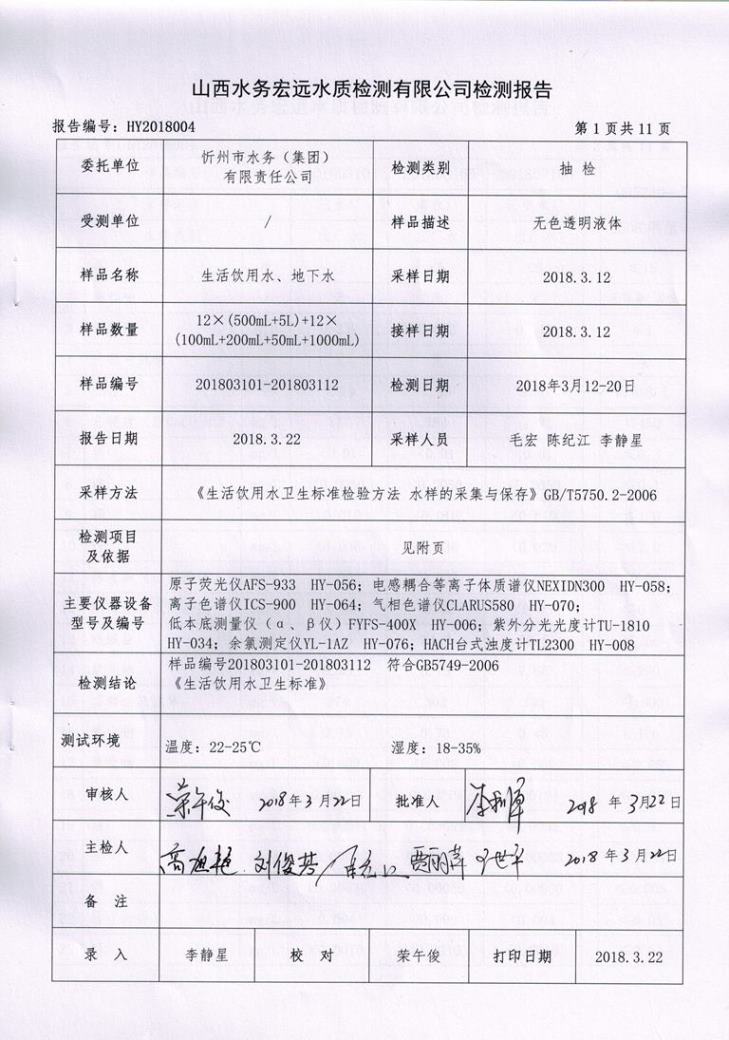 山西水务宏远水质检测有限公司检测报告
报告编号：HY2018004 第 1 页共 11 页
委托单位 忻州市水务（集团）
有限责任公司 检测类别 抽 检
受测单位 / 样品描述 无色透明液体
样品名称 生活饮用水、地下水 采样日期 2018.3.12
样品数量 12×(500mL+5L)+12×
(100mL+200mL+50mL+1000mL) 接样日期 2018.3.12
样品编号 201803101-201803112 检测日期 2018年3月12-20日
报告日期 2018.3.22 采样人员 毛宏 陈纪江 李静星
采样方法 《生活饮用水卫生标准检验方法 水样的采集与保存》GB/T5750.2-2006
检测项目
及依据 见附页
主要仪器设备
型号及编号
原子荧光仪AFS-933 HY-056；电感耦合等离子体质谱仪NEXIDN300 HY-058；
离子色谱仪ICS-900 HY-064；气相色谱仪CLARUS580 HY-070；
低本底测量仪（α、β仪）FYFS-400X HY-006；紫外分光光度计TU-1810
HY-034；余氯测定仪YL-1AZ HY-076；HACH台式浊度计TL2300 HY-008
检测结论
样品编号201803101-201803112 符合GB5749-2006
《生活饮用水卫生标准》
测试环境 温度：22-25℃ 湿度：18-35%
审核人 荣午俊 2018年3月22日 批准人 2018 年 3月22日
主检人 高旭艳 刘俊芬 2018年3月22日
备 注
录 入 李静星 校 对 荣午俊 打印日期 2018.3.22